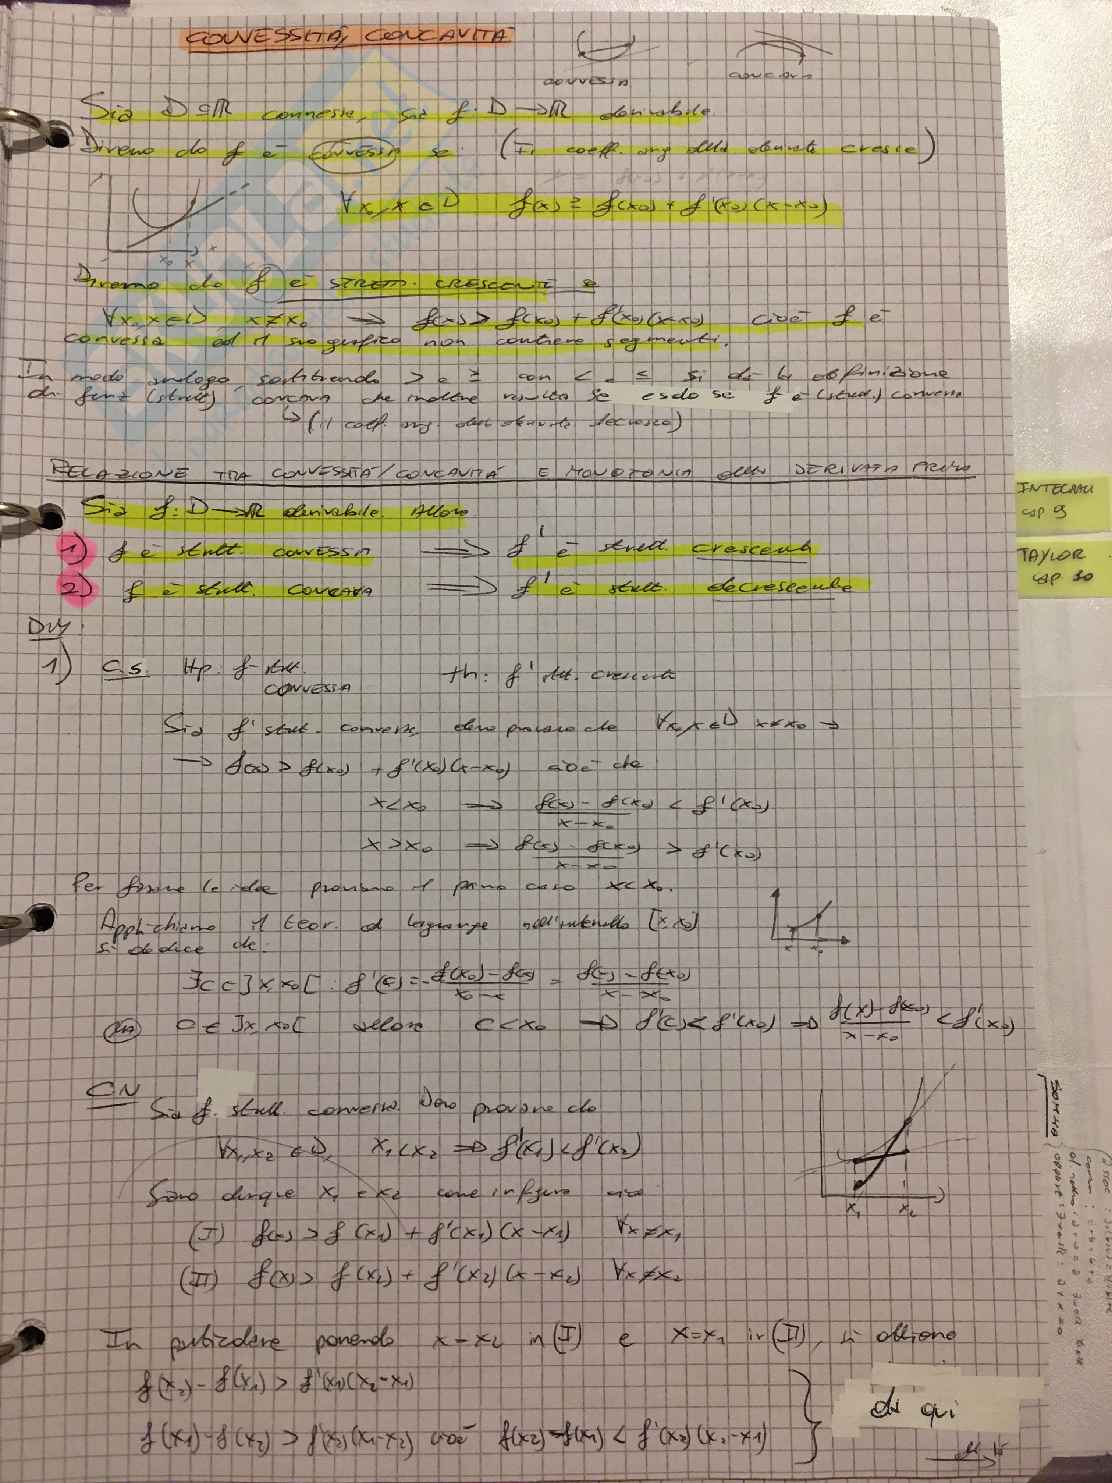 CONVESSITÀ, CONCAVITÀ
CONVESSA
CONCAVA
Sia D ⊆ ℝ connesso, sia f: D → ℝ derivabile.
Diremo che f è CONVESSA se: (Il coeff. ang della derivata cresce)
∀x₀, x ∈ D f(x) ≥ f(x₀) + f'(x₀)(x-x₀)
x₀ x
Diremo che f è STRETT. CRESCENTE se
∀x₀, x ∈ D, x≠x₀ → f(x) > f(x₀) + f'(x₀)(x-x₀) cioè f è
convessa ed il suo grafico non contiene segmenti.
In modo analogo, sostituendo > e ≥ con < e ≤ si dà la definizione
di funz (strett) concava che inoltre risulta se esolo se f è (strett.) convessa
↳ (il coeff. ang. della derivata decresce)
RELAZIONE TRA CONVESSITÀ/CONCAVITÀ E MONOTONIA della DERIVATA PRIMA
Sia f: D → ℝ derivabile. Allora
1) f è strett. CONVESSA ⟹ f' è strett. crescente
2) f è strett. CONCAVA ⟹ f' è strett. decrescente
INTEGRALI
cap 9
TAYLOR
cap 10
DIM:
1) C.S. Hp. f strett. CONVESSA th: f' strett. crescente
Sia f' strett. convessa, devo provare che ∀x₀,x ∈ D x≠x₀ →
→ f(x) > f(x₀) + f'(x₀)(x-x₀) cioè che
x<x₀ → f(x) - f(x₀) / x-x₀ < f'(x₀)
x>x₀ → f(x) - f(x₀) / x-x₀ > f'(x₀)
Per fissare le idee proviamo il primo caso x<x₀.
Applichiamo il teor. di lagrange nell'intervallo [x,x₀]
si deduce che:
∃c∈]x,x₀[ : f'(c) = f(x₀)-f(x) / x₀-x = f(x)-f(x₀) / x-x₀
c ∈ ]x,x₀[ allora c<x₀ ⟹ f'(c)<f'(x₀) ⟹ f(x)-f(x₀) / x-x₀ < f'(x₀)
CN
Sia f. strett. convessa. Devo provare che
∀x₁,x₂ ∈ D, x₁<x₂ ⟹ f'(x₁)<f'(x₂)
Siano dunque x₁ e x₂ come in figura
x₁ x₂
(I) f(x) > f(x₁) + f'(x₁)(x-x₁) ∀x≠x₁
(II) f(x) > f(x₂) + f'(x₂)(x-x₂) ∀x≠x₂
In particolare ponendo x=x₂ in (I) e x=x₁ in (II), si ottiene
f(x₂)-f(x₁) > f'(x₁)(x₂-x₁)
f(x₁)-f(x₂) > f'(x₂)(x₁-x₂) cioè f(x₂)-f(x₁) < f'(x₂)(x₂-x₁)
da qui